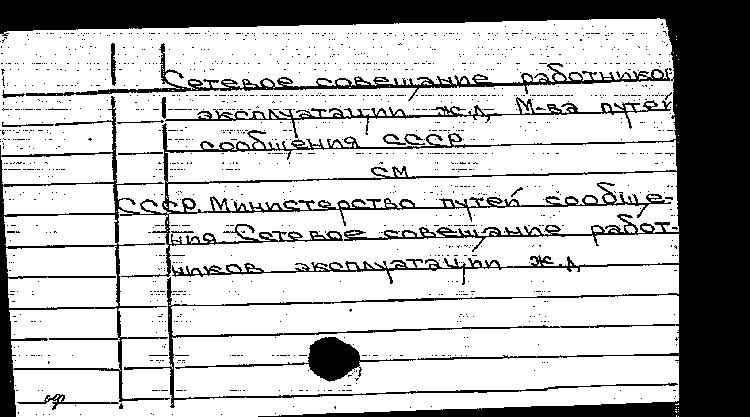 Сетевое совещание работников
эксплуатации ж.д. М-ва путей
сообщения СССР
см
СССР. Министерство путей сообще-
ния. Сетевое совещание работ-
ников эксплуатации ж.д.